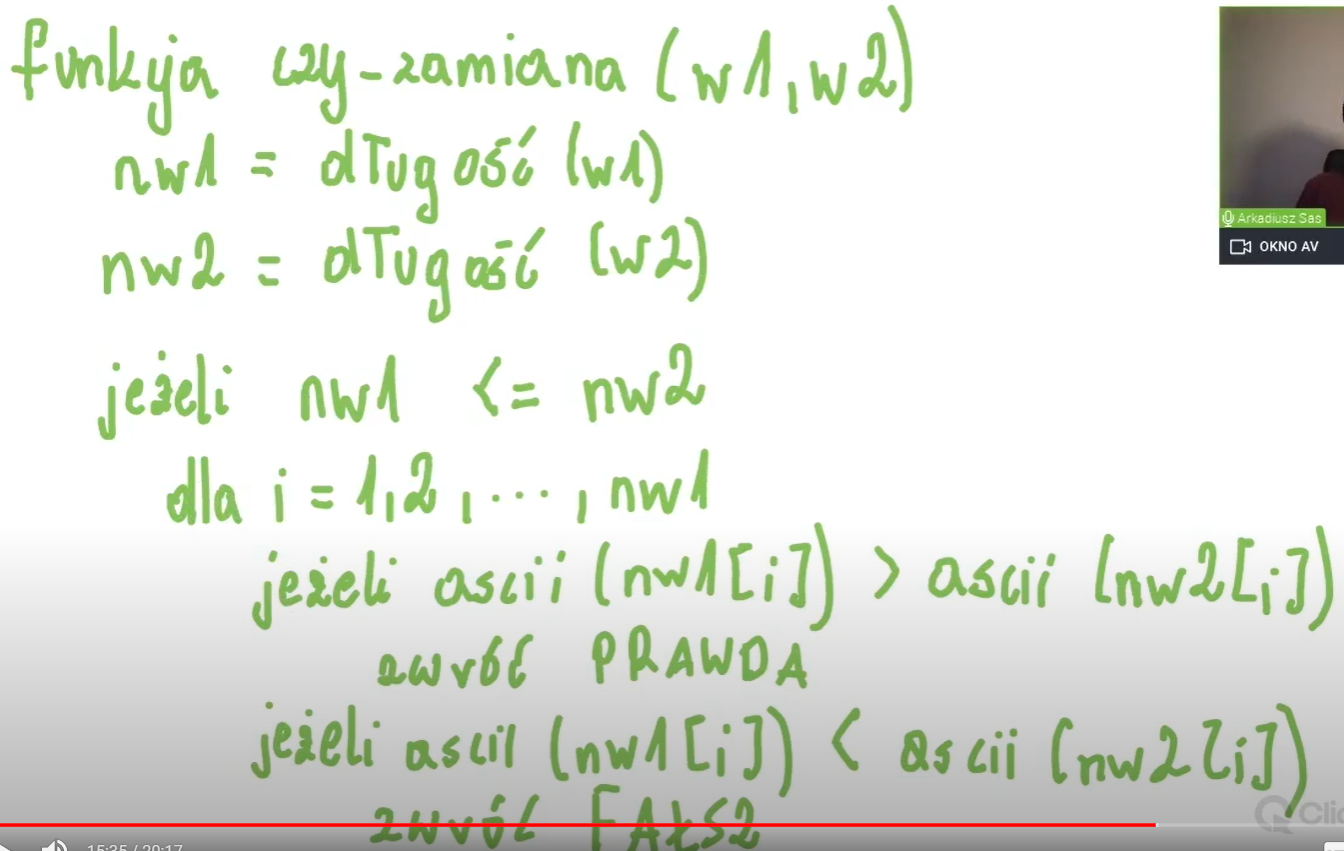 funkja czy-zamiana (w1, w2)
nw1 = długość (w1)
nw2 = długość (w2)
jeżeli nw1 <= nw2
dla i = 1, 2, ..., nw1
jeżeli ascii (nw1[i]) > ascii (nw2[i])
zwróć PRAWDA
jeżeli ascii (nw1[i]) < ascii (nw2[i])
zwróć FAŁSZ
Arkadiusz Sas
OKNO AV
15:35 / 20:17